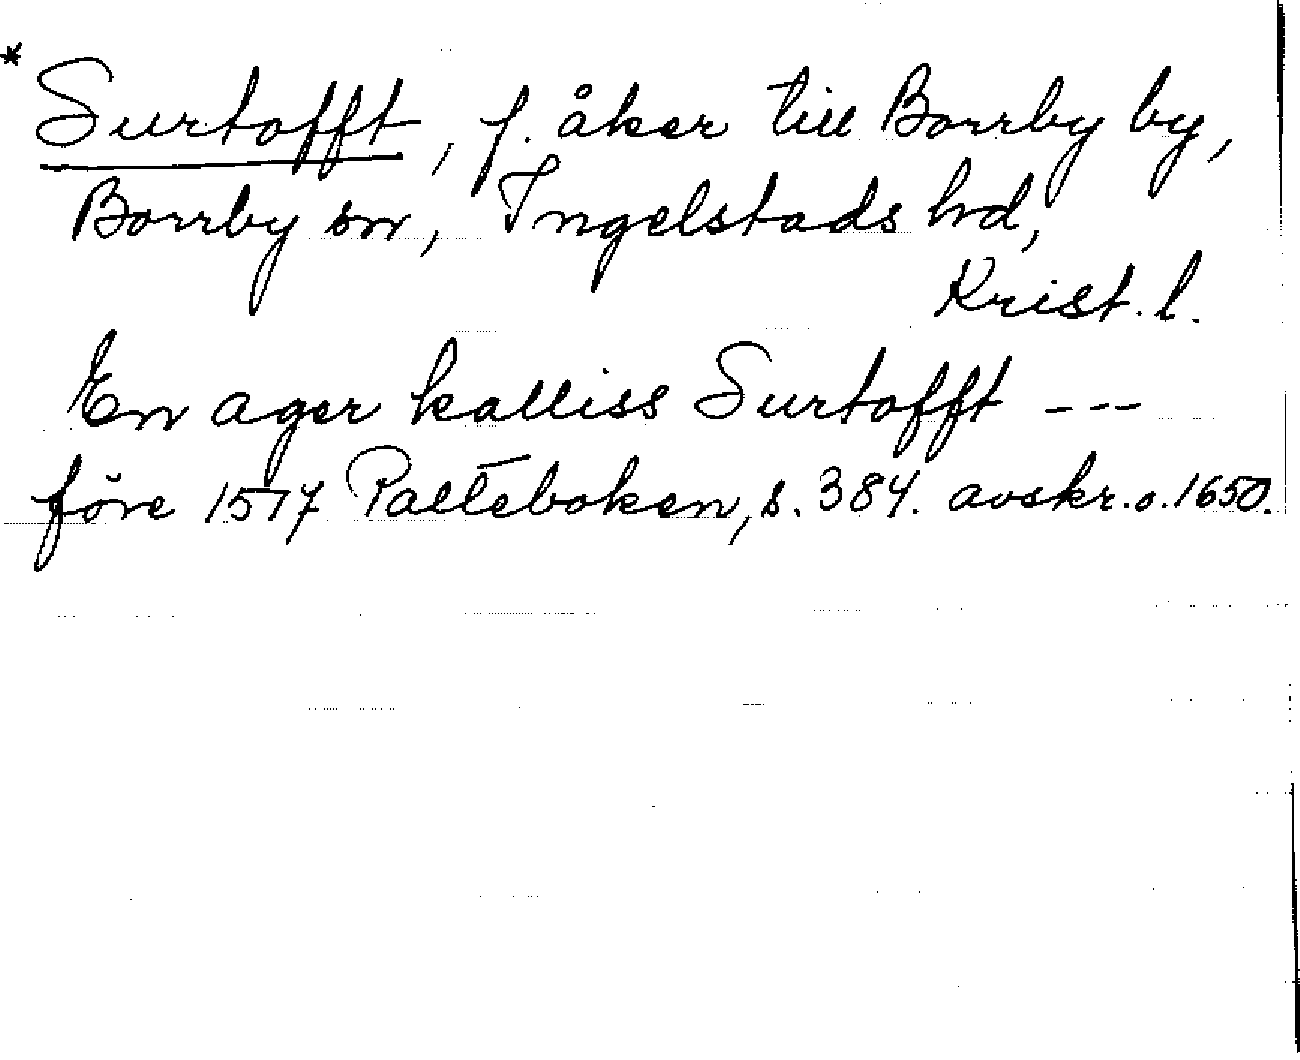 * Surtofft, f. åker till Borrby by,
Borrby sn, Ingelstads hd,
Krist. l.
En ager kalliss Surtofft ---
före 1517 Palteboken, s. 384. avskr. o. 1650.